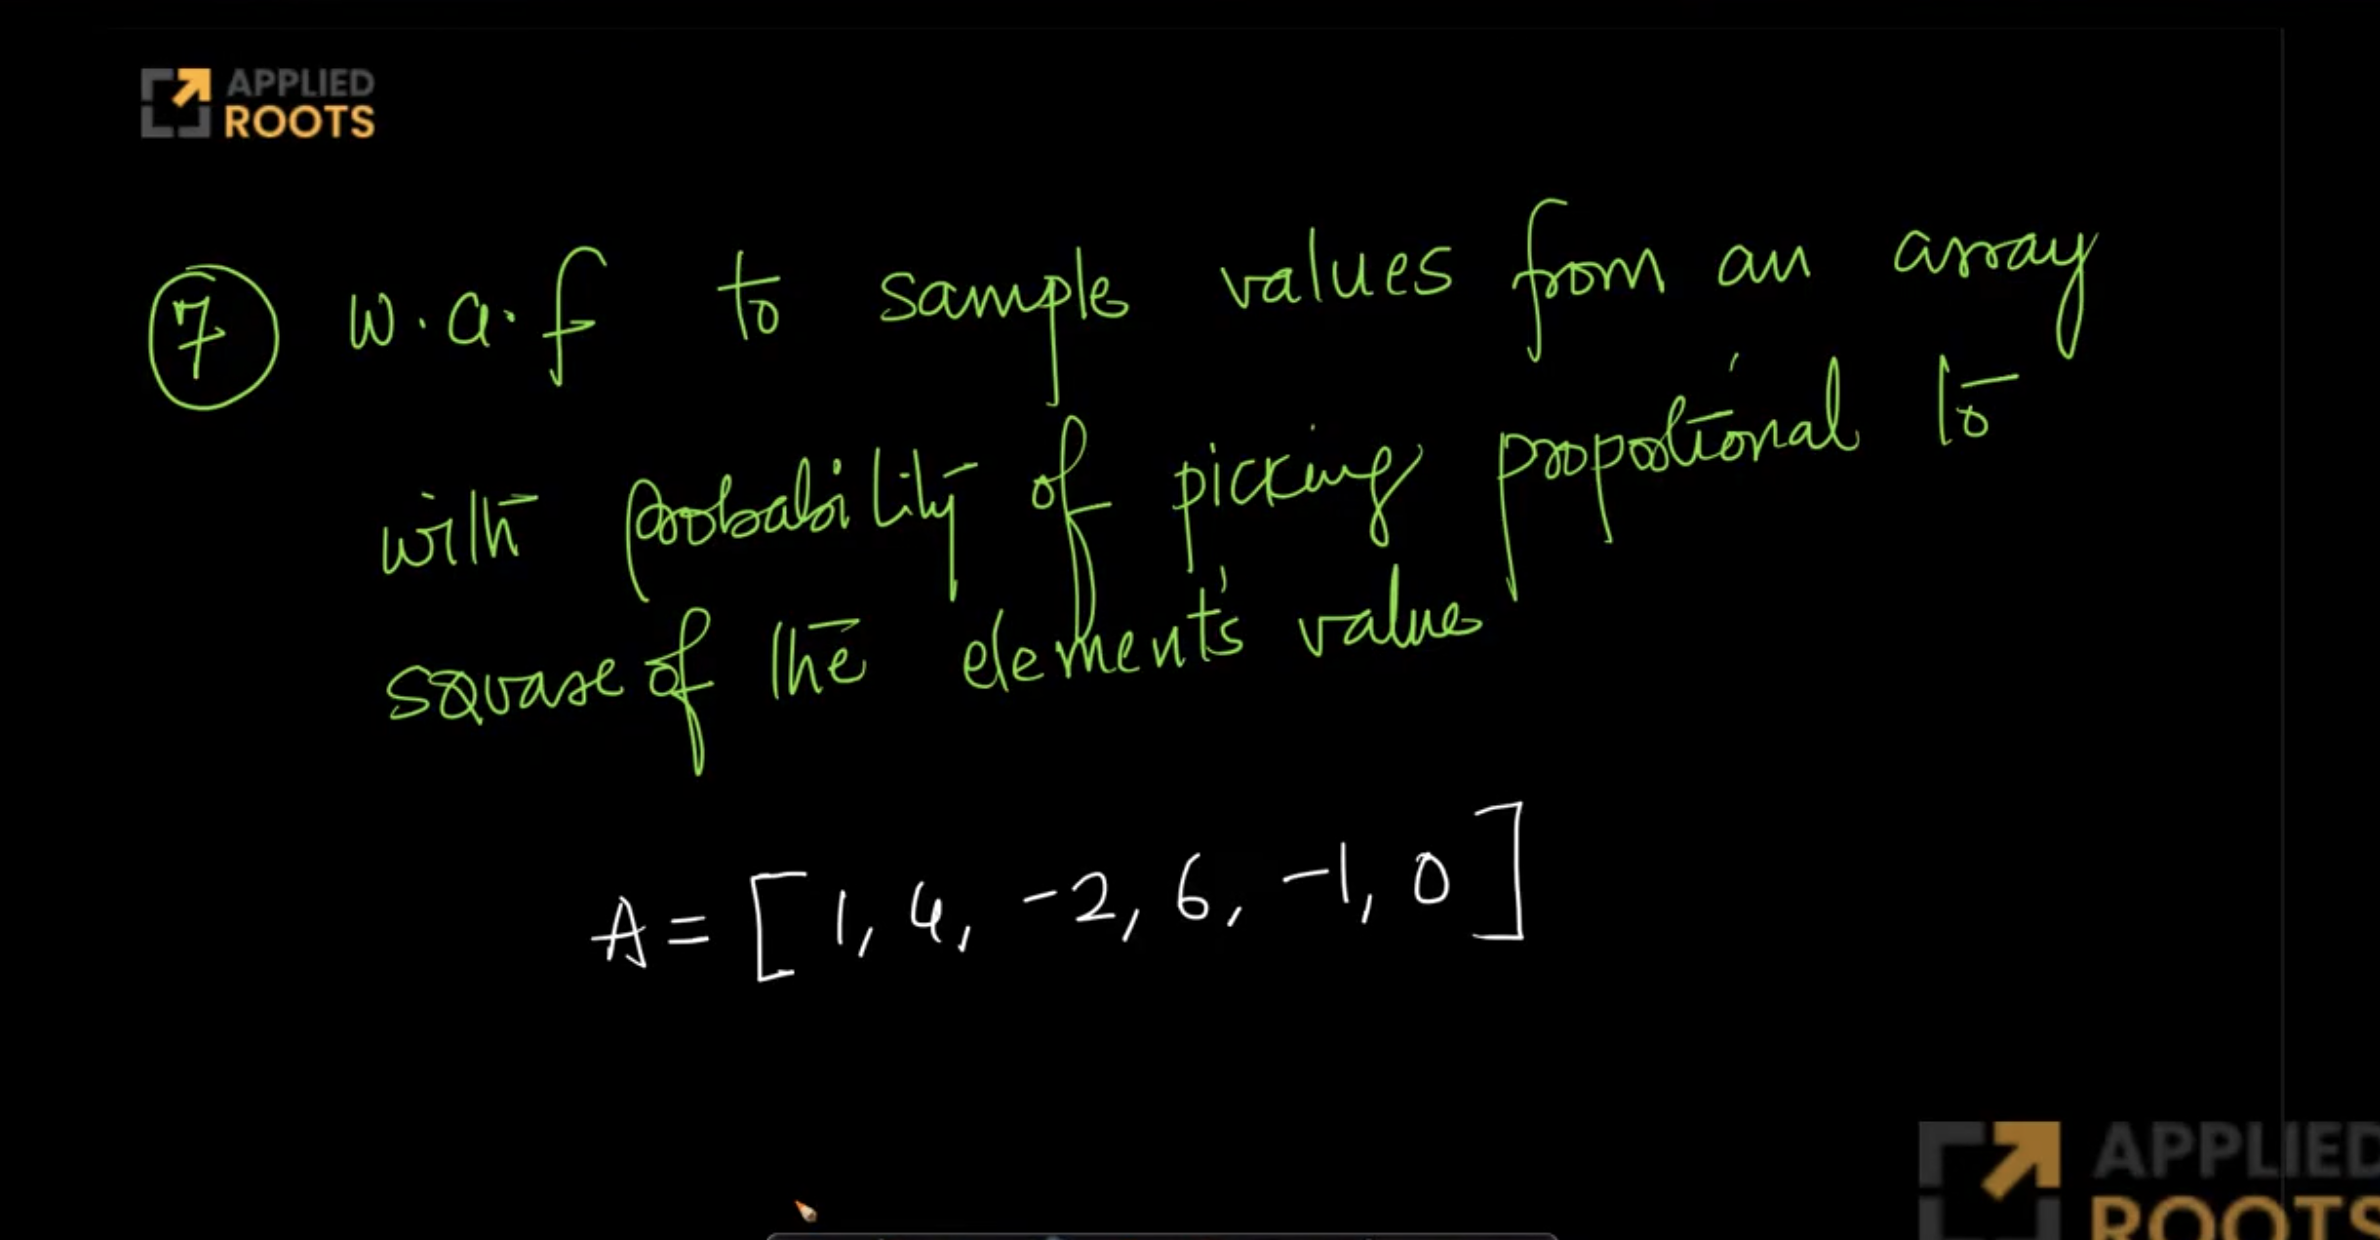 APPLIED
ROOTS
7 w.a.f to sample values from an array
with probability of picking proportional to
square of the element's value
A = [1, 4, -2, 6, -1, 0]
APPLIED
ROOTS